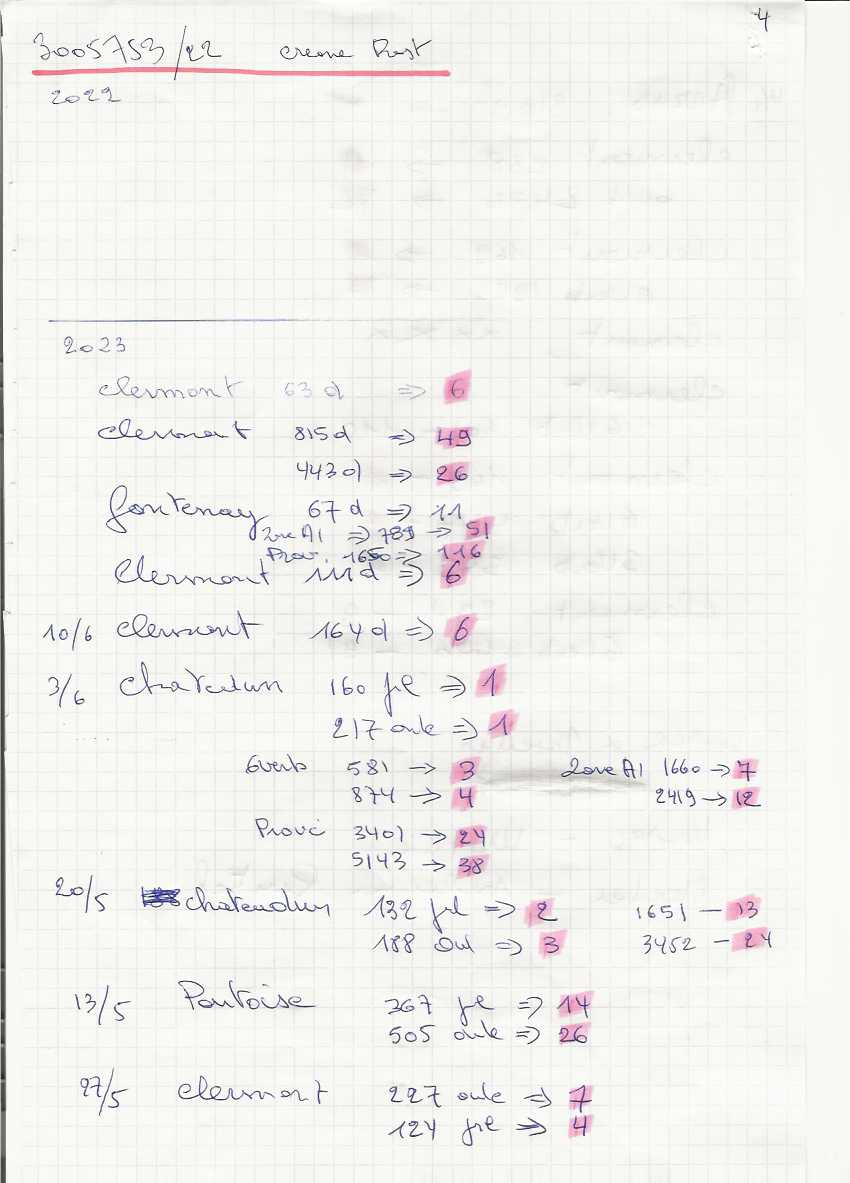 4
3005753/22 creme Rust
2022
2023
Clermont 63 d => 6
Clermont 815 d => 49
443 d => 26
fontenay 67 d => 11
Zone A1 => 789 -> 51
Prov. 1650 => 116
Clermont 111 d => 6
10/6 Clermont 164 d => 6
3/6 Chateudun 160 jrl => 1
217 oude => 1
Everb 581 -> 3 Zone A1 1660 -> 7
874 -> 4 2419 -> 12
Provi 3401 -> 24
5143 -> 38
20/5 chateudun 132 jrl => 2 1651 - 13
188 oul => 3 3452 - 24
13/5 Pontoise 367 jrl => 14
505 oude => 26
27/5 Clermont 227 oude => 7
124 jrl => 4